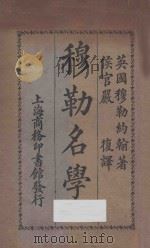 英國穆勒約翰著
侯官嚴復譯
穆勒名學
上海商務印書館發行